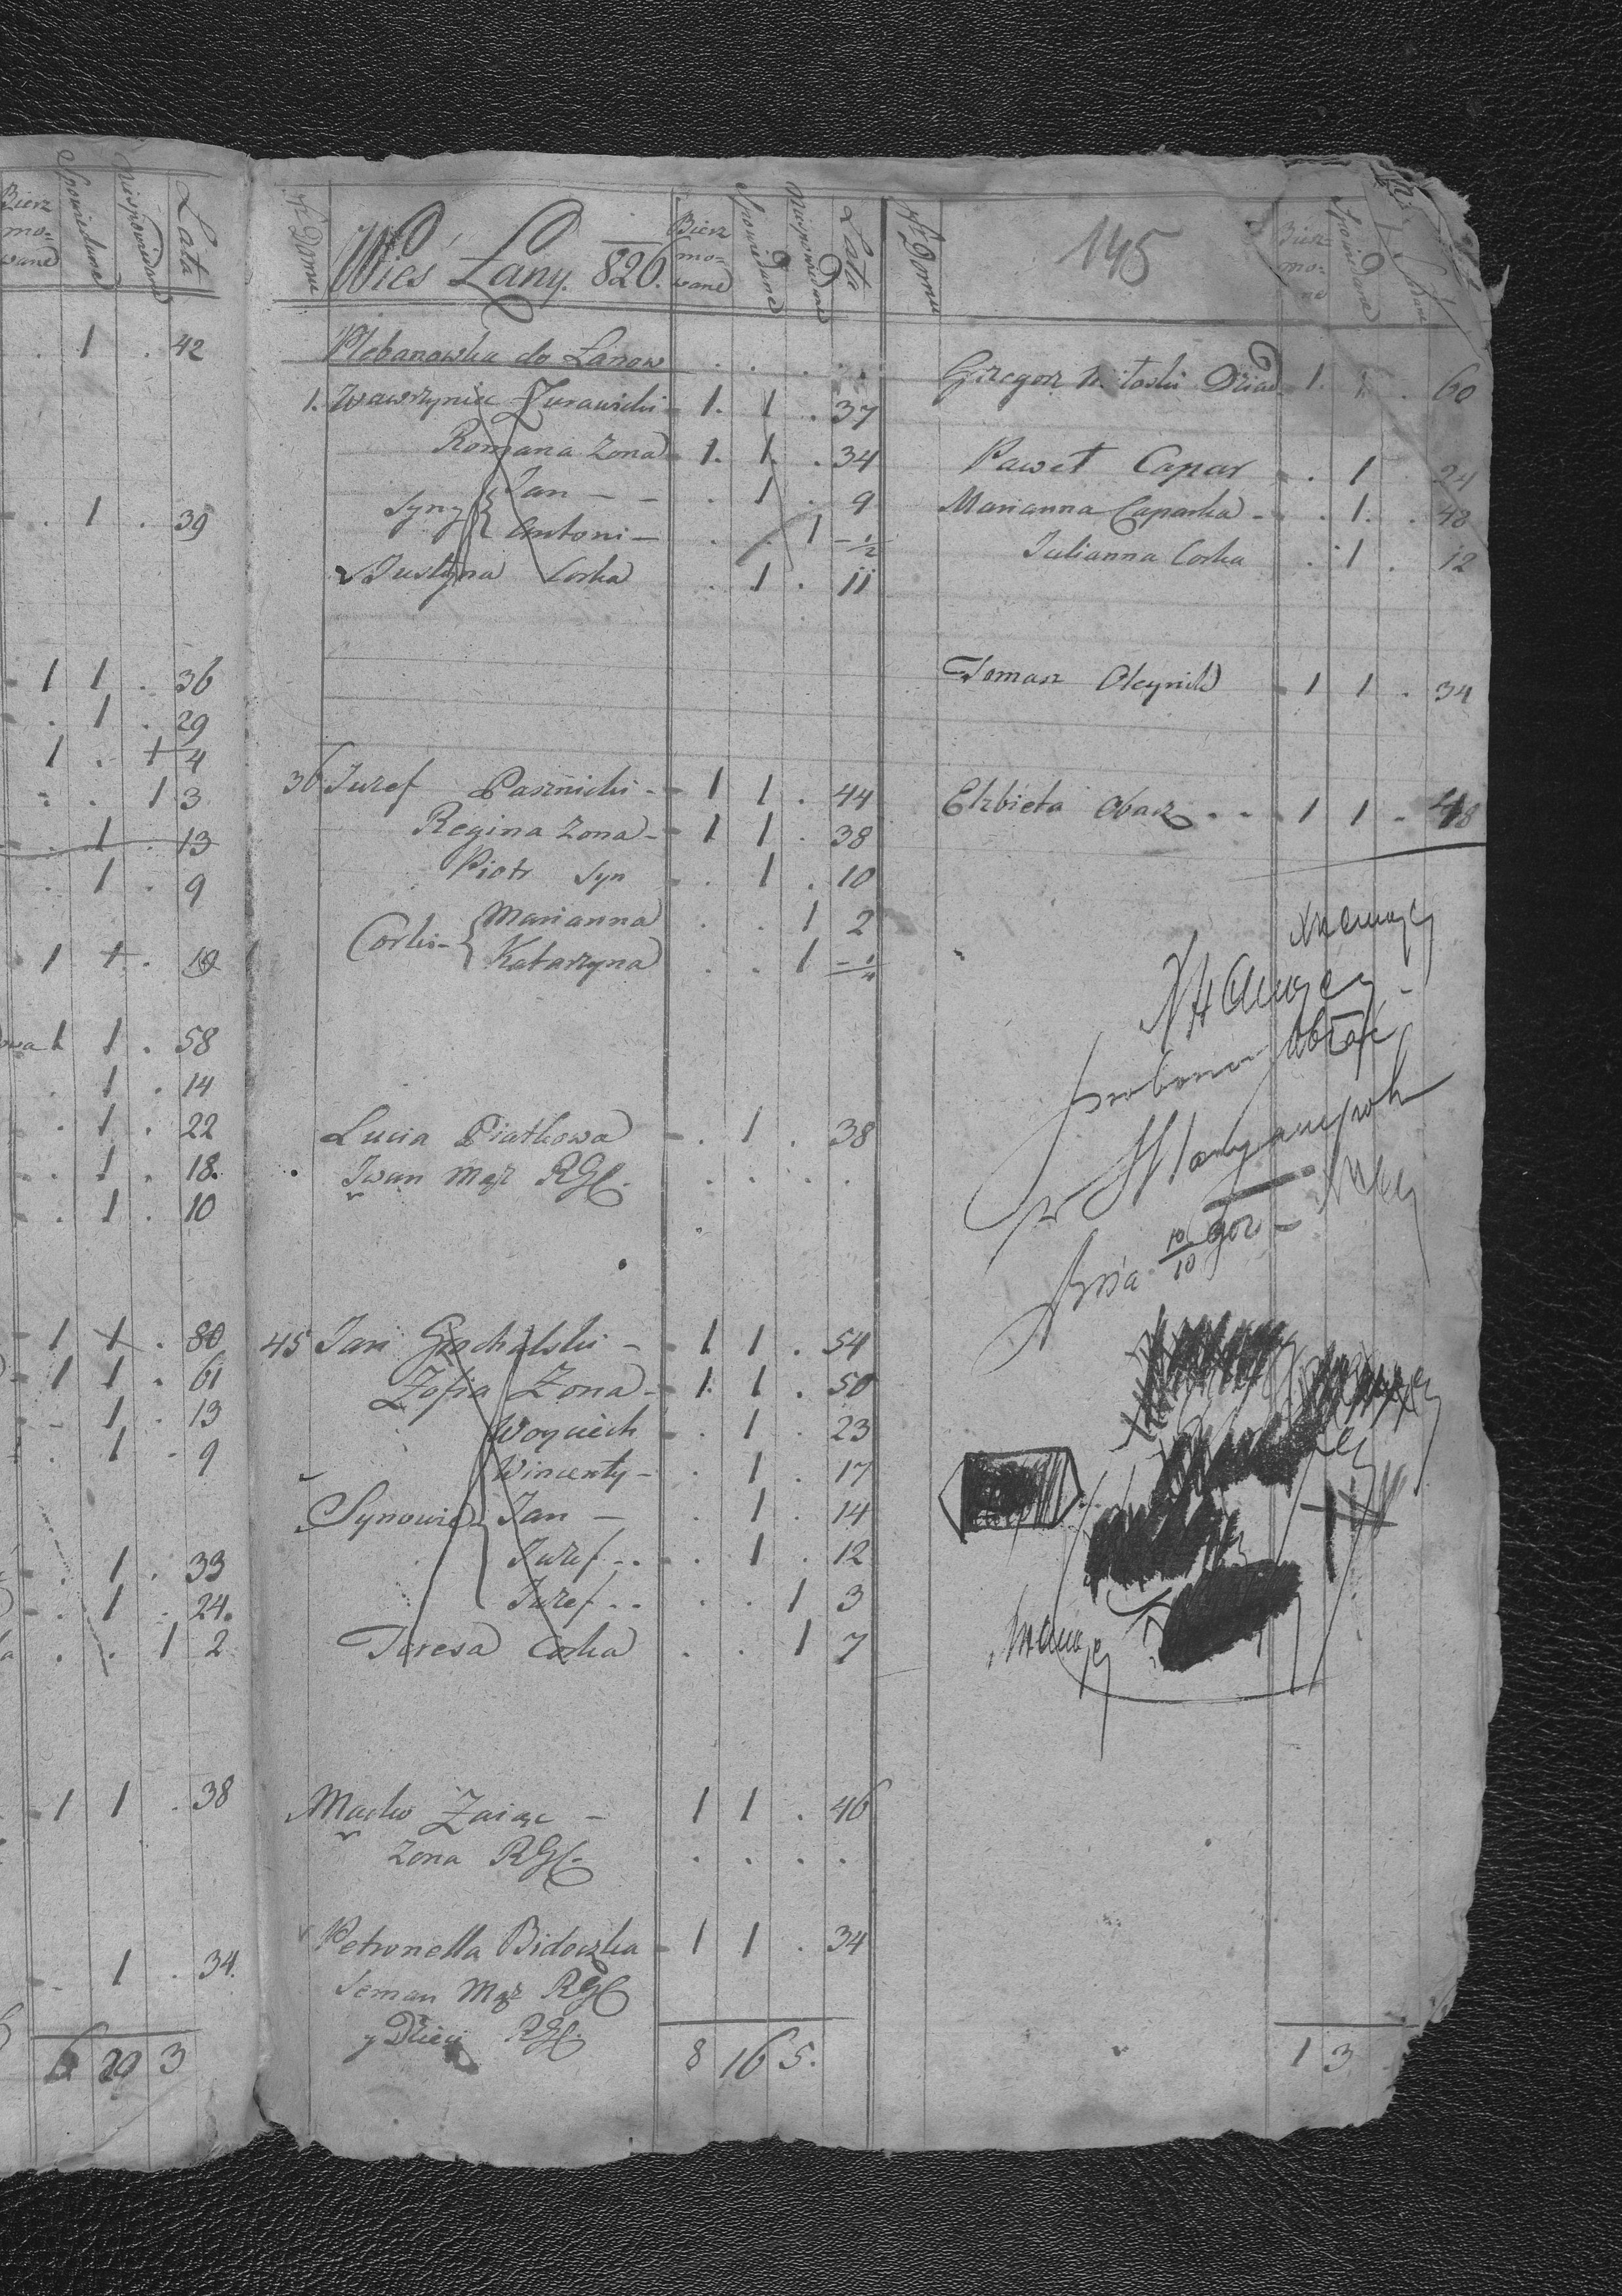 Bierz mo= wane Spowiedane Niespowiedane Lata
. 1 . 42
. 1 . 39
1 1 . 36
. 1 . 29
1 . + 4
. . 1 3
. 1 . 13
. 1 . 9
1 + . 19
1 1 . 58
. 1 . 14
. 1 . 22
. 1 . 18.
. 1 . 10
1 + . 80
1 1 . 61
. 1 . 13
. 1 . 9
. 1 . 33
. 1 . 24.
. . 1 2
1 1 . 38
. 1 . 34.
6 29 3
Nr Domu Wieś Łany. 826. Bierz mo= wane Spowiedane Niespowiedane Lata
Plebanowka do Łanow . . . .
1. Wawrzyniec Żurawicki 1. 1 . 37
Romana Zona 1. 1. . 34
Syny { Jan - - . 1 . 9
Antoni - . . 1 - 1/2
Justyna Corka . 1 . 11
36 Iuzef Pasznicki - 1 1 . 44
Regina Zona - 1 1 . 38
Piotr Syn . 1 . 10
Corki - { Marianna . . 1 2
Katarzyna . . 1 - 1/4
Lucia Piatkowa . 1 . 38
Iwan Mąż RGC. . . . .
45 Jan Grochalski - 1 1 . 54
Zofia Zona - 1. 1 . 50
Woyciech . 1 . 23
Wincenty - . 1 . 17
Synowie { Jan - . 1 . 14
Iuzef . . . 1 . 12
Iuzef . . . . 1 3
Teresa Corka . . 1 7
Macko Zaiąc - 1 1 . 46
Zona RGC. . . . .
Petronella Bidoczka 1 1 . 34
Seman Mąż RGC
y Dzieci RGC.
8 16 5.
Nr Domu 145 Bierz mo= ne Spowiedane
Grzegorz Dziad 1. 1 . 60
Paweł Capar . 1 . 24
Marianna Caparka - . 1. . 48
Julianna Corka . 1 . 12
Tomasz Oleynik 1 1 . 34
Elzbieta Obacz . . 1 1 . 48
10/10
1 3